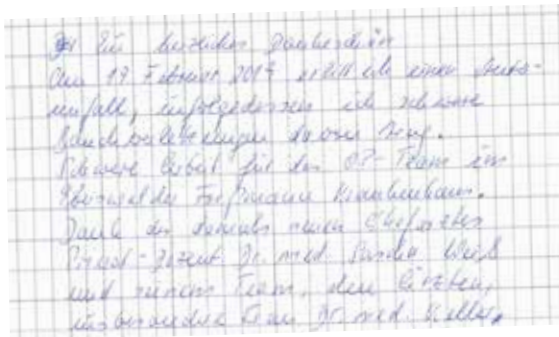 Ein herzliches Dankeschön
Am 19. Februar 2014 erlitt ich einen Auto-
unfall, infolgedessen ich schwere
Bauchverletzungen davon trug.
Schwere Arbeit für das OP-Team im
Eberswalder Forßmann Krankenhaus.
Dank des damals neuen Chefarztes
Privat-Dozent Dr. med. Weiß
und seinem Team, den Ärzten,
insbesondere Frau Dr. med. Keller,